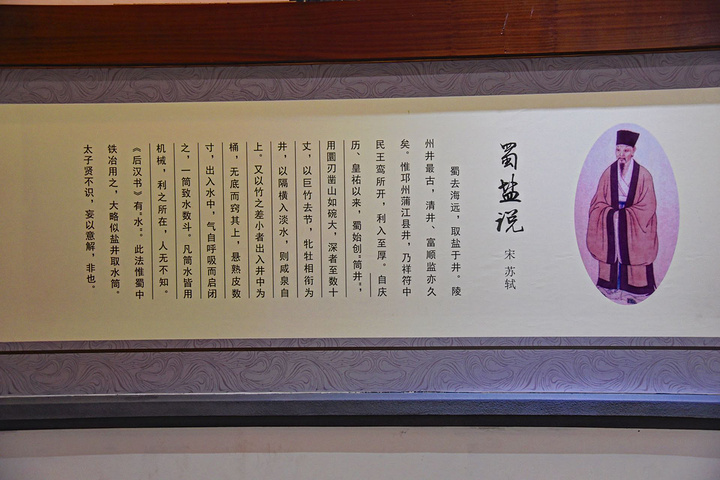 蜀盐说
宋 苏轼
蜀去海远，取盐于井。陵
州井最古，清井、富顺监亦久
矣。惟邛州蒲江县井，乃祥符中
民王鸾所开，利入至厚。自庆
历、皇祐以来，蜀始创“筒井”，
用圜刃凿山如碗大，深者至数十
丈，以巨竹去节，牝牡相衔为
井，以隔横入淡水，则咸泉自
上。又以竹之差小者出入井中为
桶，无底而窍其上，悬熟皮数
寸，出入水中，气自呼吸而启闭
之，一筒致水数斗。凡筒水皆用
机械，利之所在，人无不知。
《后汉书》有“水”。此法惟蜀中
铁冶用之，大略似盐井取水筒。
太子贤不识，妄以意解，非也。